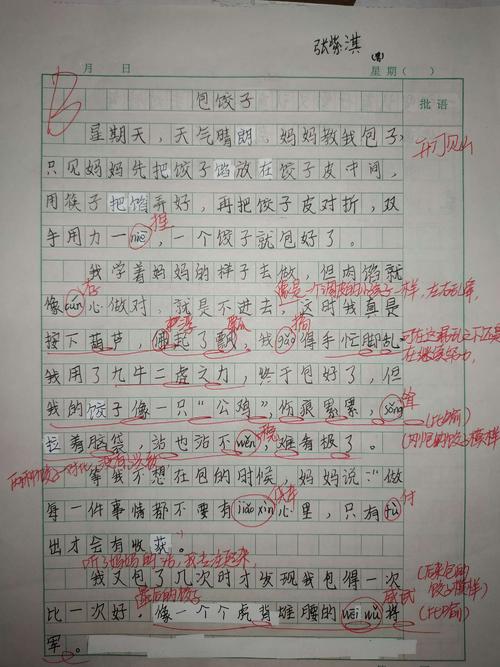 张紫淇
月 日 星期( )
批语
包饺子
星期天，天气晴朗，妈妈教我包子，
开门见山
只见妈妈先把饺子馅放在饺子皮中间，
用筷子把馅弄好，再把饺子皮对折，双
捏
手用力一niē，一个饺子就包好了。
我学着妈妈的样子去做，但肉馅就
存
像是一个调皮的小孩子一样，左右乱窜，
像cún心做对，就是不进去，这时我真是
瓢
搞
按下葫芦，起了瓢，我gǎo得手忙脚乱
可在这混乱之下还是
在继续努力，
我用了九牛二虎之力，终于包好了，但
耸
我的饺子像一只“公鸡”，伤痕累累，sǒng
(比喻)
稳
拉着脑袋，站也站不wěn，难看极了。
等我不想在包的时候，妈妈说：“做
付
每一件事情都不要有jiǎo xìn心里，只有fù
出才会有收获。
听了妈妈的话，我
我又包了几次时才发现我包得一次
威武
(后来包的
饺子模样)
最后的饺子
比一次好，像一个个虎背雄腰的wēi wǔ将
(比喻)
军。